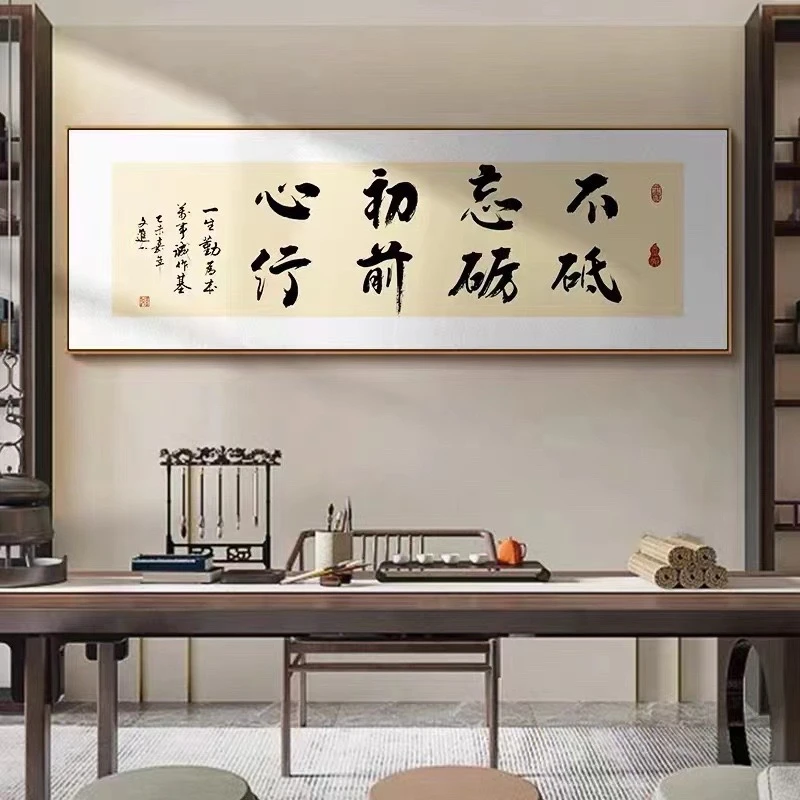 不忘初心
砥砺前行
一生勤为本
萬事诚作基
乙未